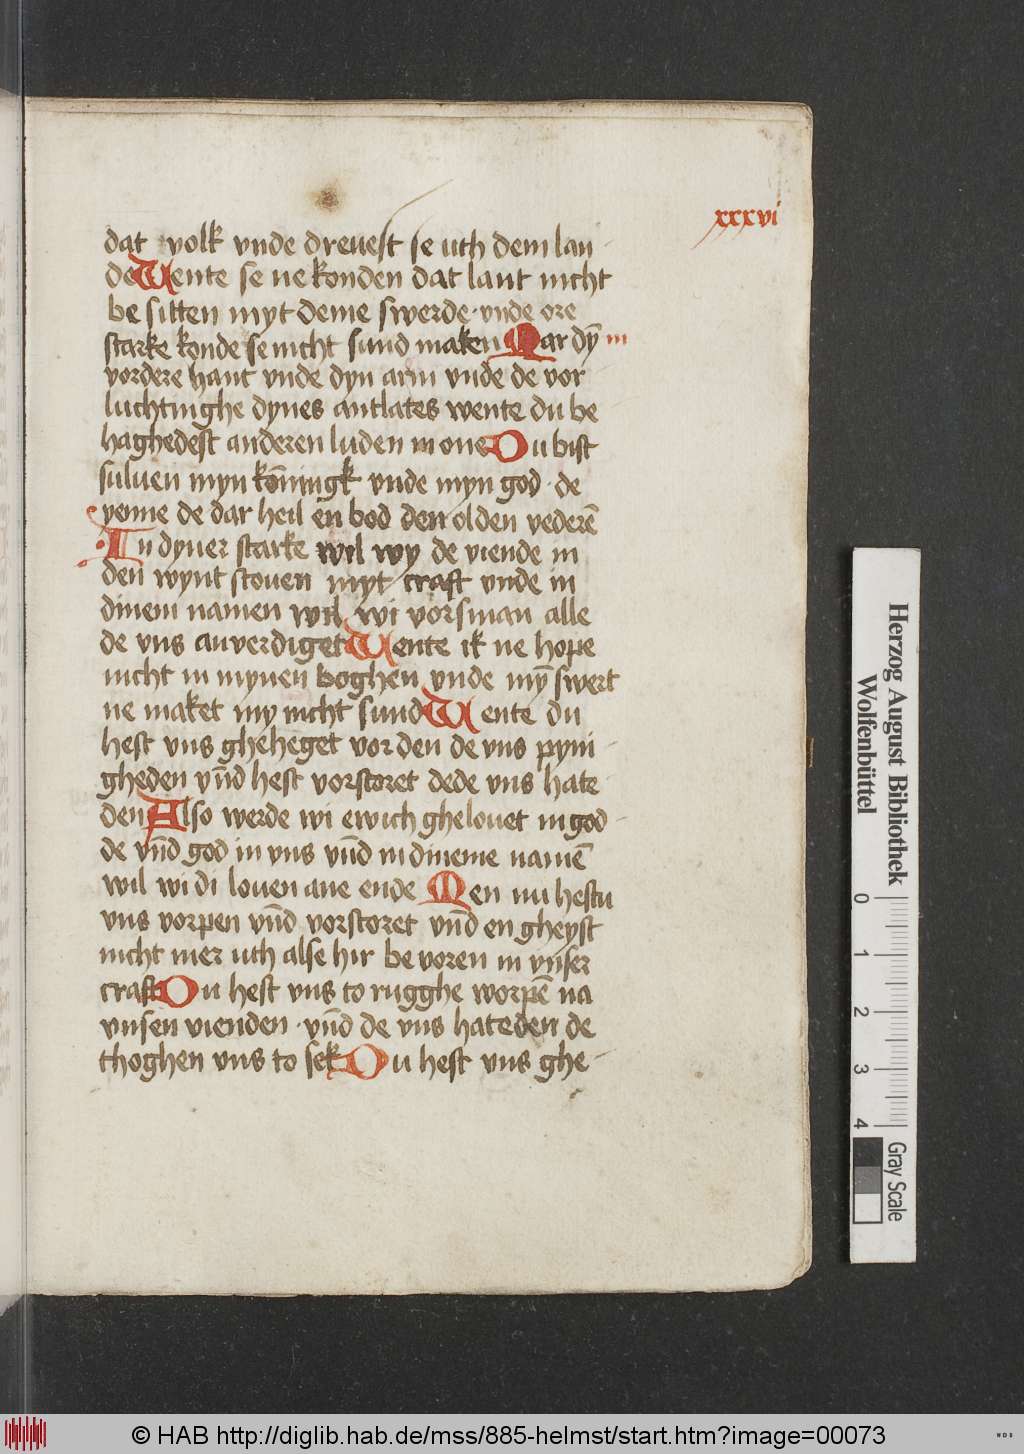 xxxvi
dat volk vnde dreuest se uth dem lan
de Wente se ne konden dat lant nicht
be sitten myt deme swerde · vnde ore
starke konde se nicht sund maken Mar dȳ m
vordere hant vnde dyn arm vnde de vor
luchtinghe dynes antlates wente du be
haghedest anderen luden in one Du bist
suluen myn kōningk vnde myn god · de
yenne de dar heil en bod den olden vederē
In dyner starke wil wy de viende in
den wynt stouen myt craft vnde in
dinem namen wil wi vorsman alle
de vns anverdiget Wente ik ne hope
nicht in mynen boghen vnde mȳ swert
ne maket my nicht sund Wente du
hest vns gheheget vor den de vns pyni
gheden vn̄d hest vorstoret dede vns hate
den Also werde wi ewich ghelouet in god
de vn̄d god in vns vn̄d in dineme namē
wil wi di louen ane ende Men nu hestu
vns vorpen vn̄d vorstoret vn̄d en gheyst
nicht mer uth alse hir be voren in vnser
craft Du hest vns to rugghe worpē na
vnsen vienden · vn̄d de vns hateden de
thoghen vns to sek Du hest vns ghe
Herzog August Bibliothek
Wolfenbüttel
0 1 2 3 4
Gray Scale
© HAB http://diglib.hab.de/mss/885-helmst/start.htm?image=00073